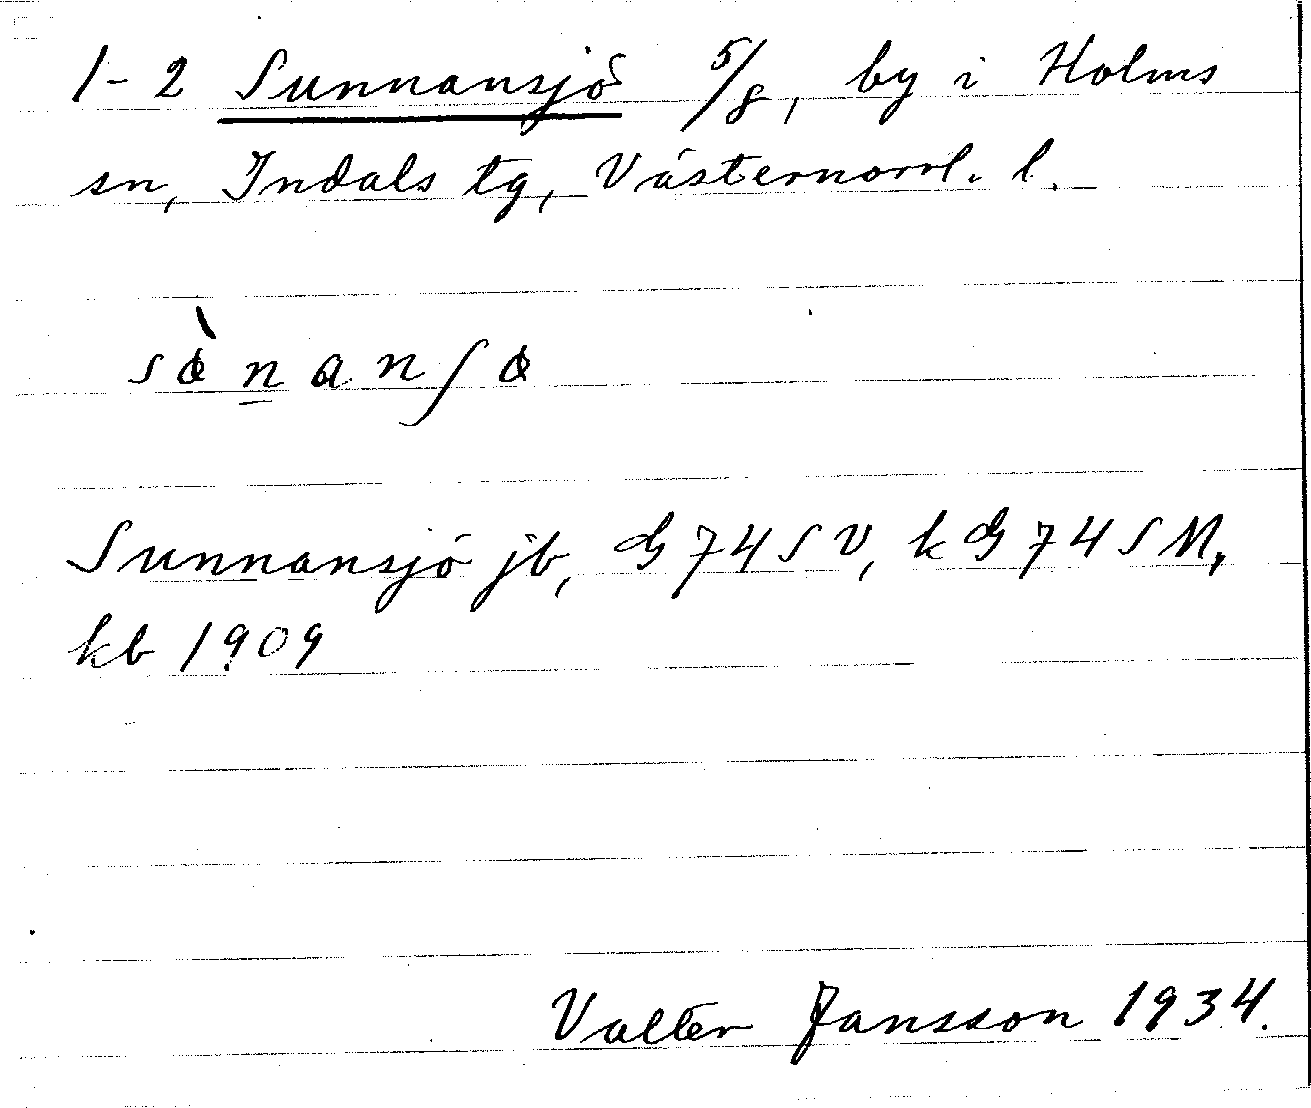 1-2 Sunnansjö 5/8, by i Holms
sn, Indals tg, Västernorrl. l.
sɵ̀nanʃɵ
Sunnansjö jb, G 74 SV, k G 74 S M,
kb 1909
Valter Jansson 1934.